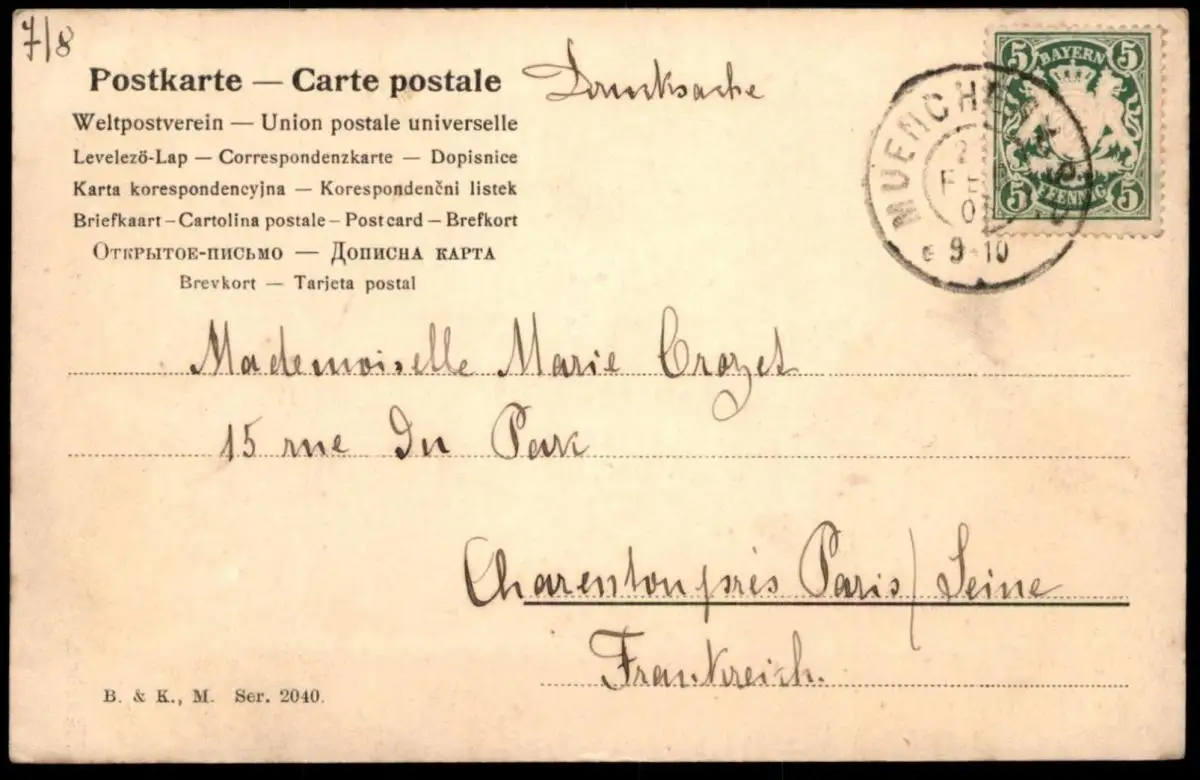 7/8
Postkarte — Carte postale
Drucksache
Weltpostverein — Union postale universelle
Levelező-Lap — Correspondenzkarte — Dopisnice
Karta korespondencyjna — Korespondenční listek
Briefkaart – Cartolina postale – Post card – Brefkort
Открытое-письмо — Дописна карта
Brevkort — Tarjeta postal
5 BAYERN 5
5 PFENNIG 5
MUENCHEN
FEB
9-10
Mademoiselle Marie Crozet
15 rue du Park
Charenton près Paris / Seine
Frankreich.
B. & K., M. Ser. 2040.